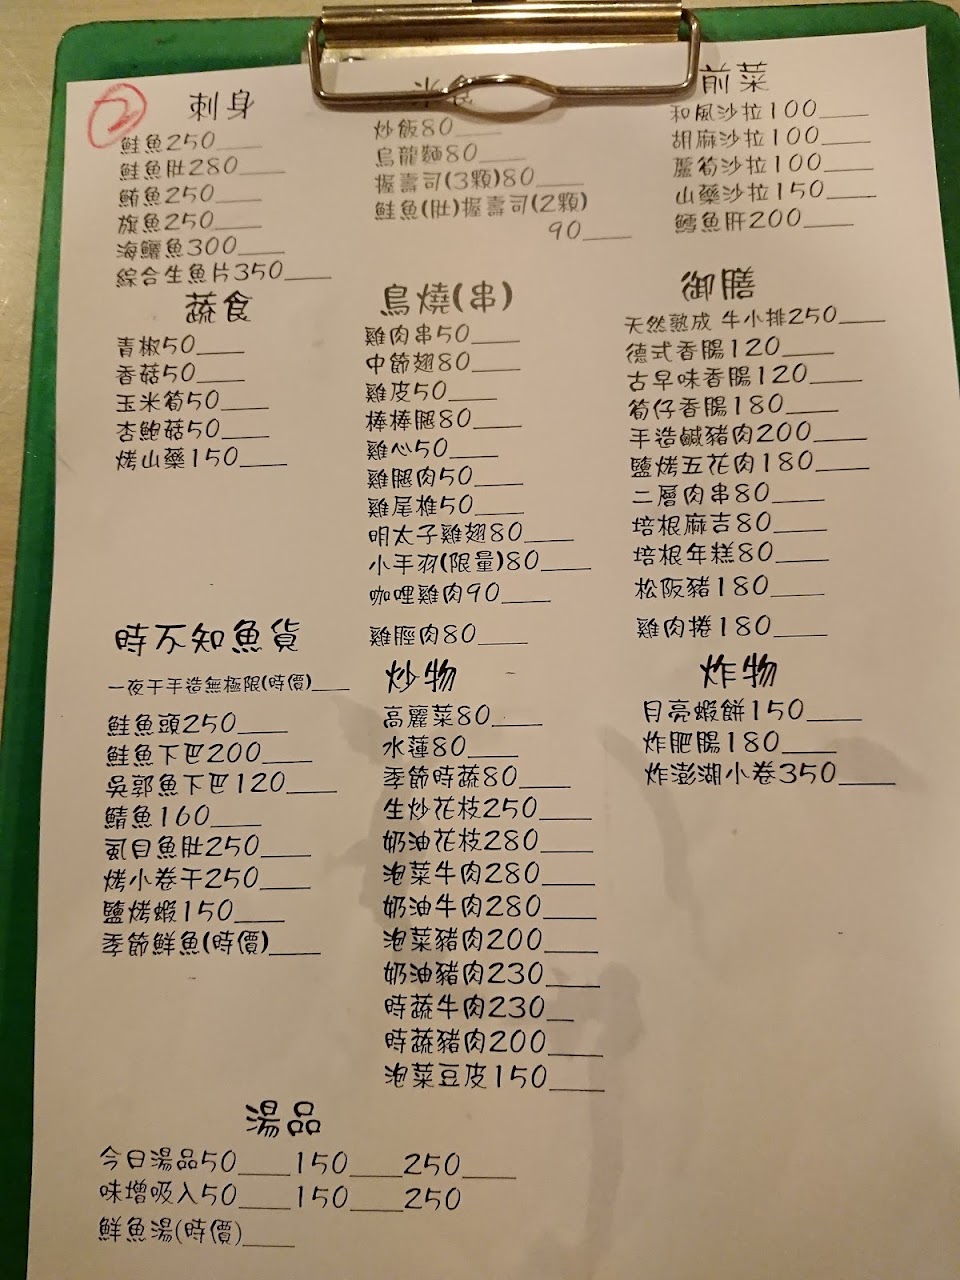 2
刺身
鮭魚250____
鮭魚肚280____
鮪魚250____
旗魚250____
海鱺魚300____
綜合生魚片350____
蔬食
青椒50____
香菇50____
玉米筍50____
杏鮑菇50____
烤山藥150____
時不知魚貨
一夜干手造無極限(時價)____
鮭魚頭250____
鮭魚下巴200____
吳郭魚下巴120____
鯖魚160____
虱目魚肚250____
烤小卷干250____
鹽烤蝦150____
季節鮮魚(時價)____
食
炒飯80____
烏龍麵80____
握壽司(3顆)80____
鮭魚(肚)握壽司(2顆)
90____
鳥燒(串)
雞肉串50____
中節翅80____
雞皮50____
棒棒腿80____
雞心50____
雞腿肉50____
雞尾椎50____
明太子雞翅80____
小手羽(限量)80____
咖哩雞肉90____
雞脛肉80____
炒物
高麗菜80____
水蓮80____
季節時蔬80____
生炒花枝250____
奶油花枝280____
泡菜牛肉280____
奶油牛肉280____
泡菜豬肉200____
奶油豬肉230____
時蔬牛肉230__
時蔬豬肉200____
泡菜豆皮150____
前菜
和風沙拉100____
胡麻沙拉100____
蘆筍沙拉100____
山藥沙拉150____
鱈魚肝200____
御膳
天然熟成 牛小排250____
德式香腸120____
古早味香腸120____
筍仔香腸180____
手造鹹豬肉200____
鹽烤五花肉180____
二層肉串80____
培根麻吉80____
培根年糕80____
松阪豬180____
雞肉捲180____
炸物
月亮蝦餅150____
炸肥腸180____
炸澎湖小卷350____
湯品
今日湯品50____150____250____
味增吸入50____150____250
鮮魚湯(時價)____